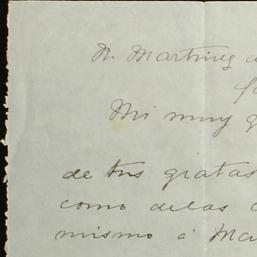 Martinez
Mi muy
de tus gratas
como delas
mismo á